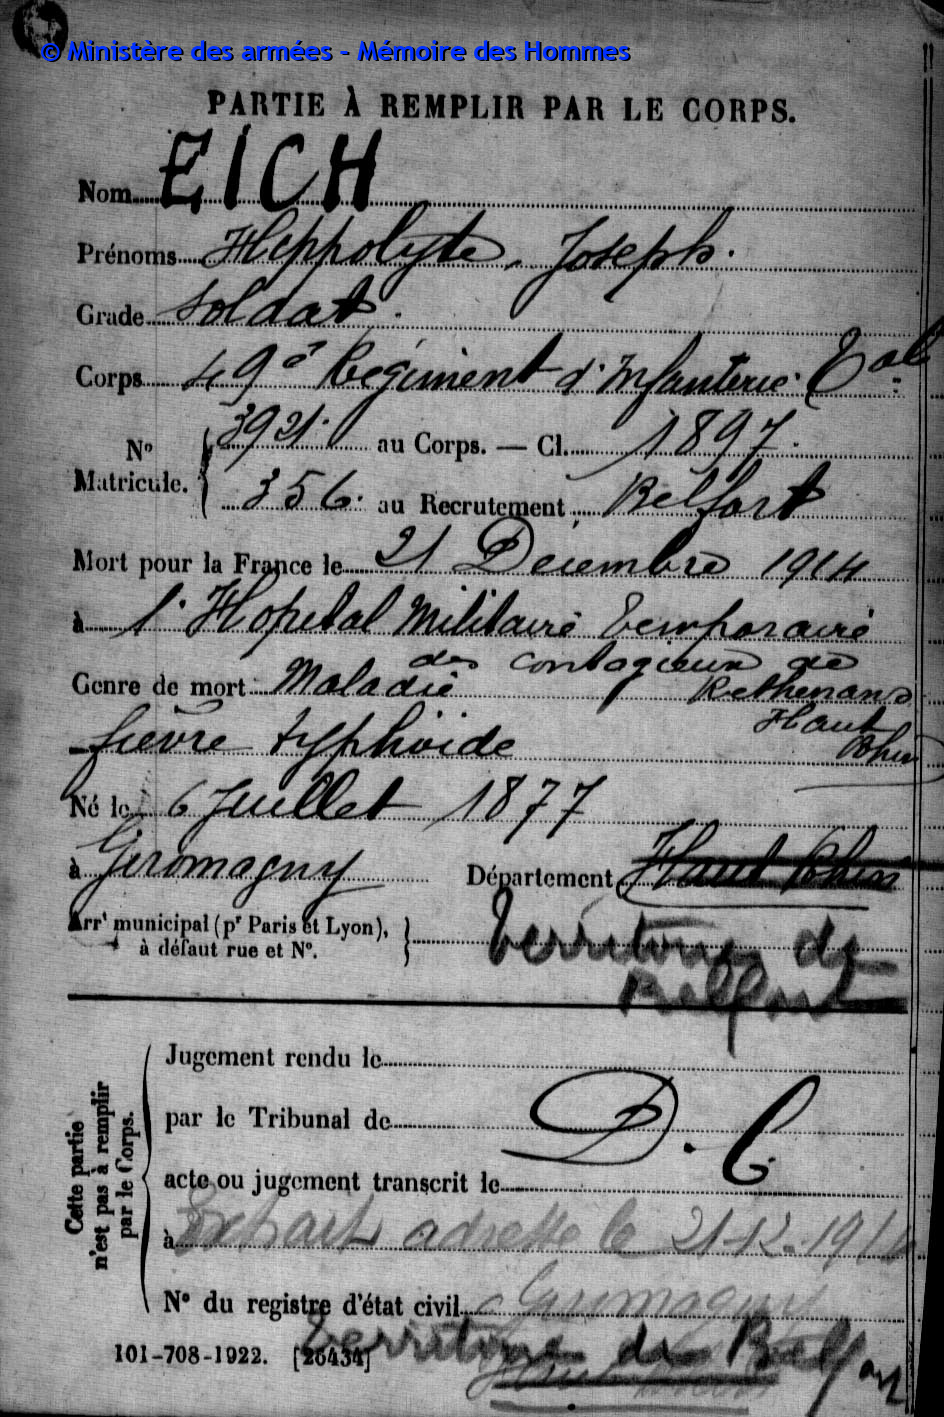 © Ministère des armées - Mémoire des Hommes
PARTIE À REMPLIR PAR LE CORPS.
Nom EICH
Prénoms Hippolyte, Joseph.
Grade Soldat.
Corps 49e Régiment d'Infanterie Tal
No Matricule. 3921. au Corps. — Cl. 1897.
356. au Recrutement Belfort
Mort pour la France le 21 Décembre 1914
à l'Hopital Militaire temporaire
des contagieux de
Genre de mort Maladie Rethenans
Haut
fièvre typhoïde Rhin
Né le 6 Juillet 1877
à Giromagny Département Haut Rhin
Arrt municipal (pr Paris et Lyon), à défaut rue et No. Territoire de
Belfort
Cette partie n'est pas à remplir par le Corps.
Jugement rendu le
par le Tribunal de
D. C.
acte ou jugement transcrit le
à Extrait adressé le 21-12-1914
No du registre d'état civil à Giromagny
Territoire de Belfort
101-708-1922. [26434]
Haut